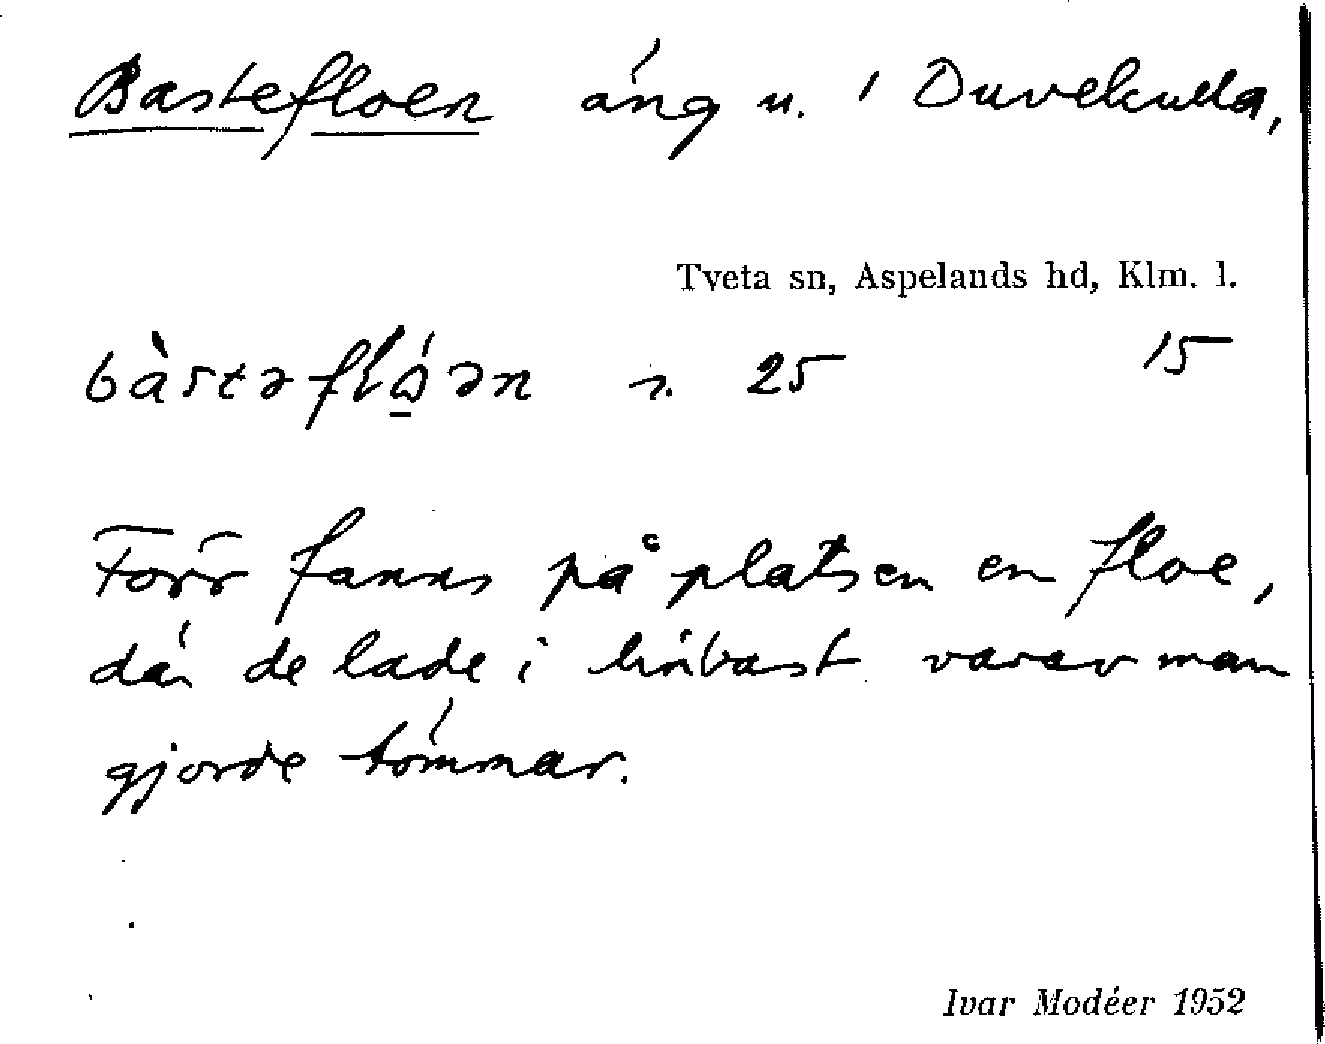 Bastefloen äng u. i Duvekulla,
Tveta sn, Aspelands hd, Klm. l.
bàstəflǫ́ən n. 25 15
Förr fanns på platsen en floe,
där de lade i lin̈bast varav man
gjorde tömmar.
Ivar Modéer 1952